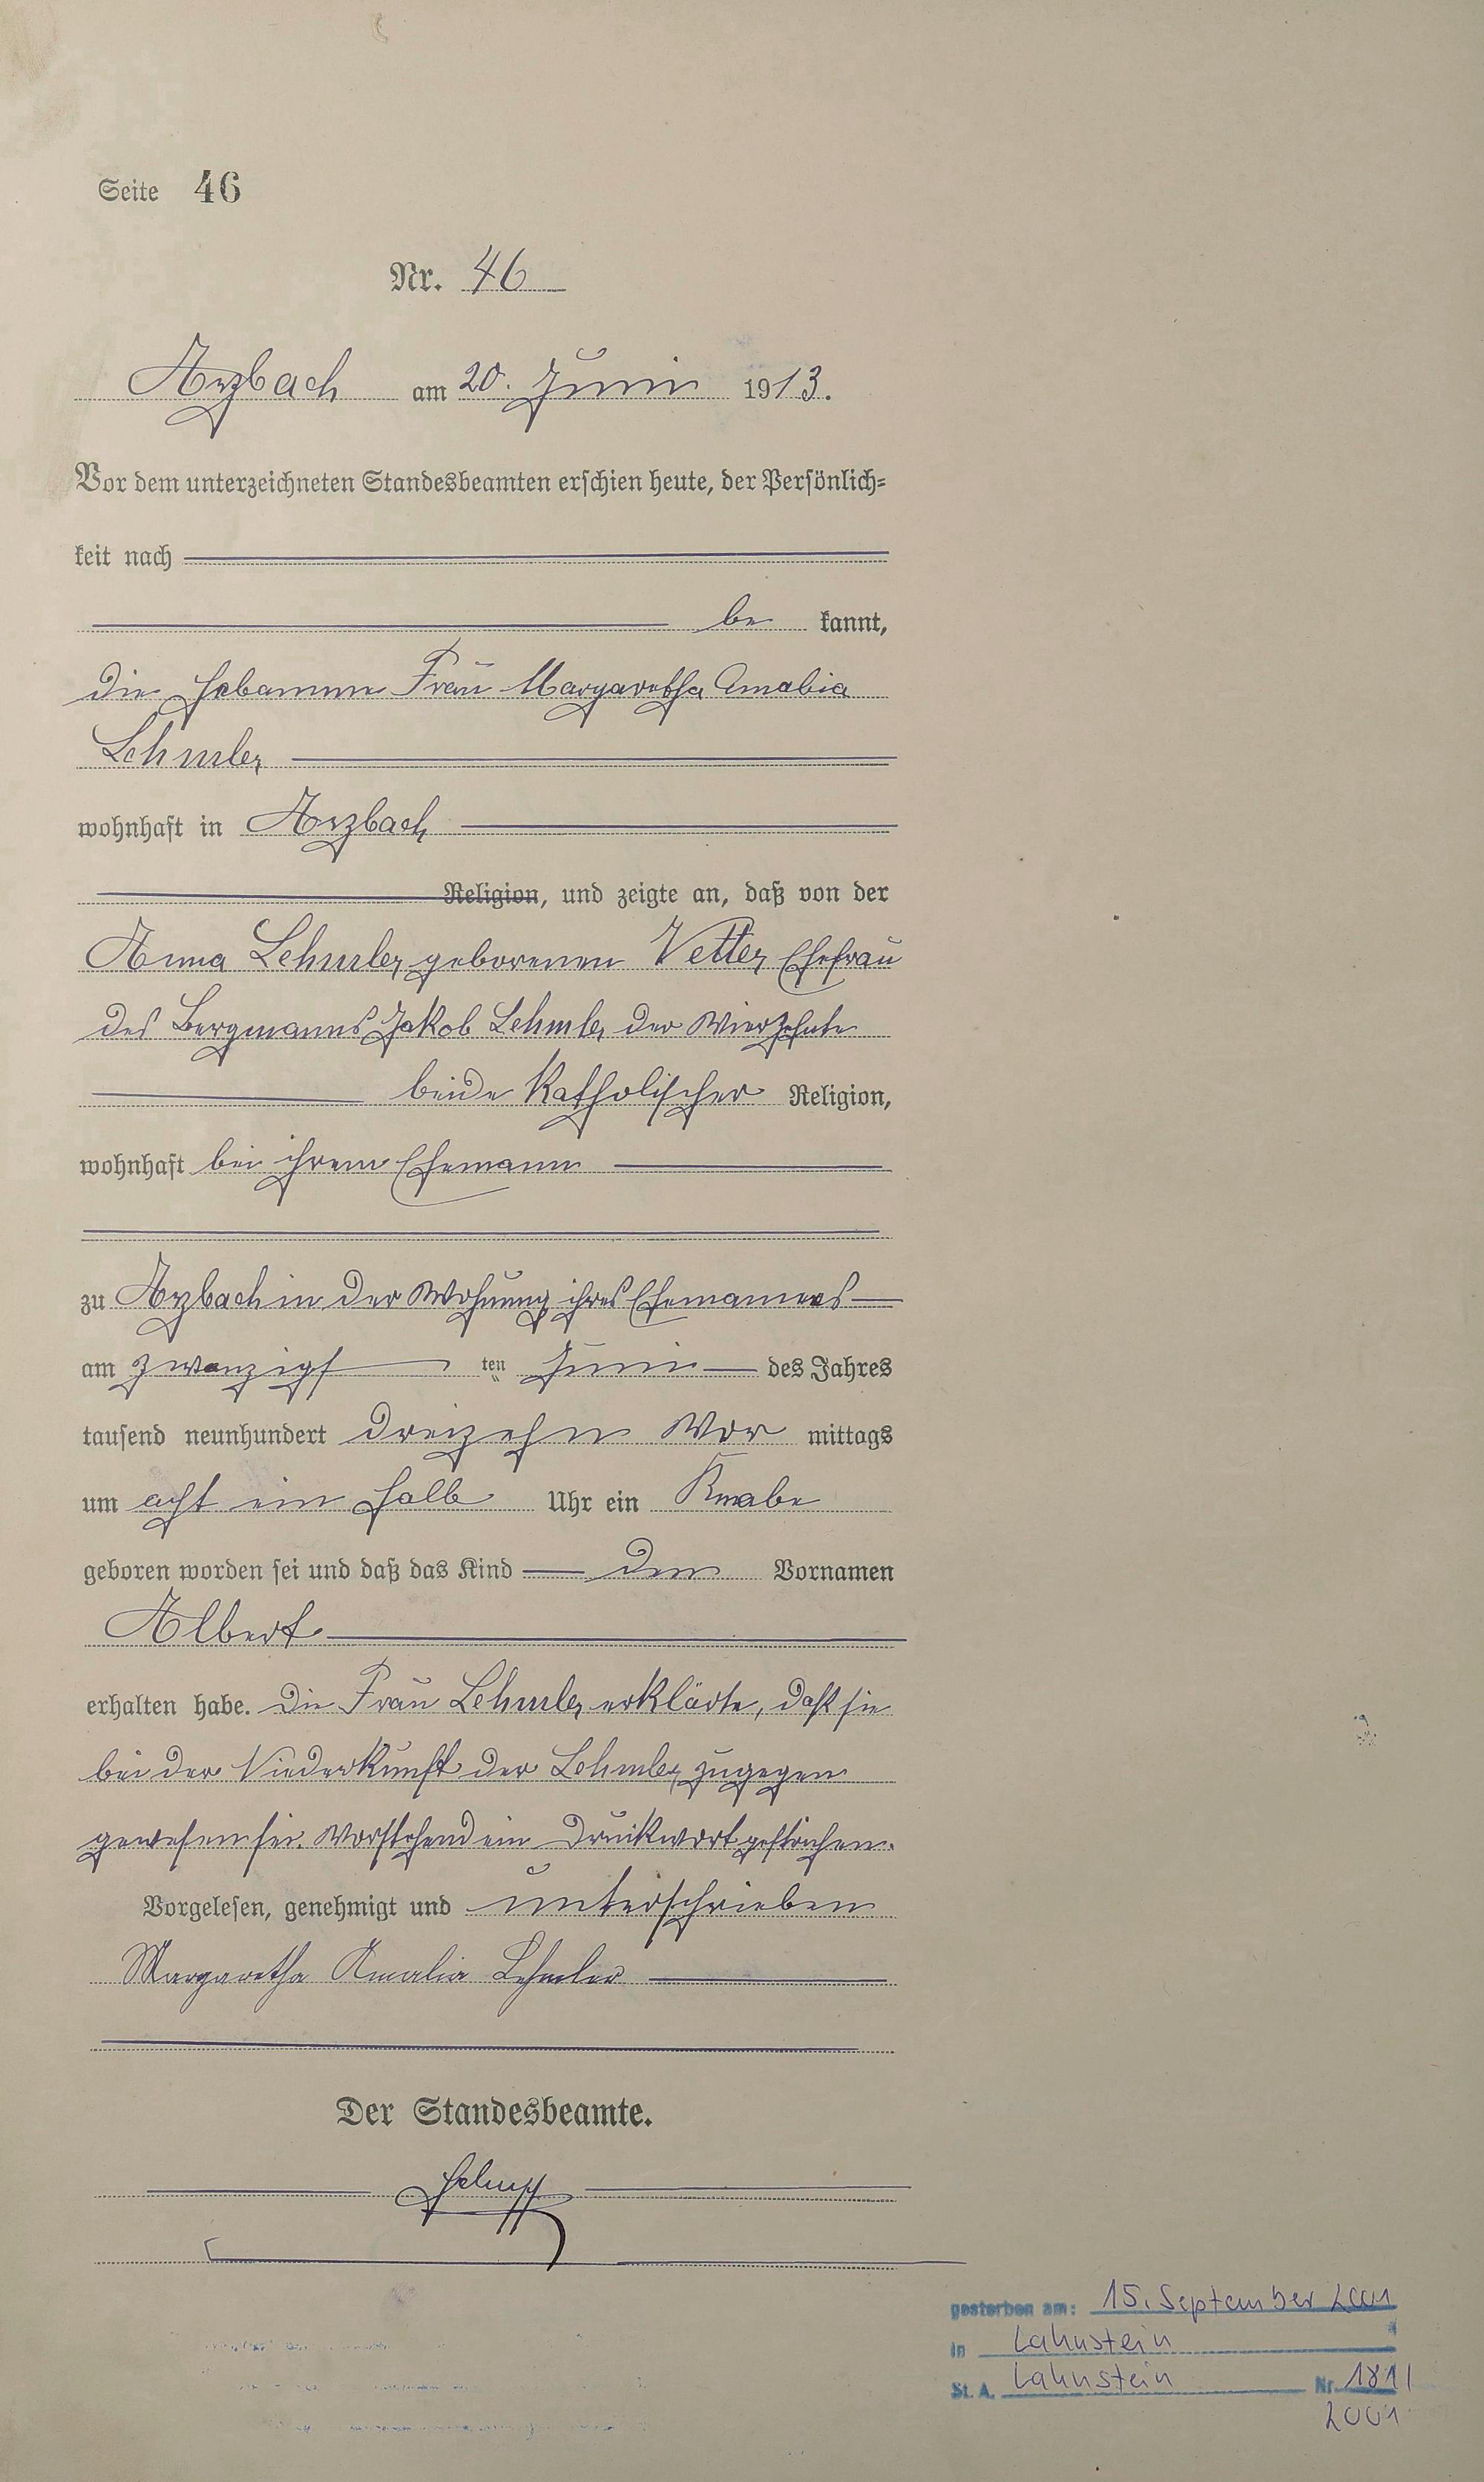 Seite 46
Nr. 46
Arzbach am 20. Juni 1913.
Vor dem unterzeichneten Standesbeamten erschien heute, der Persönlich=
keit nach
be kannt,
die Hebamme Frau Margaretha Amalia
Lehmler
wohnhaft in Arzbach
Religion, und zeigte an, daß von der
Anna Lehmler geborenen Vetter Ehefrau
des Bergmanns Jakob Lehmler der Vierzehnte
beide Katholischer Religion,
wohnhaft bei ihrem Ehemann
zu Arzbach in der Wohnung ihres Ehemannes
am zwanzigsten Juni des Jahres
tausend neunhundert dreizehn Vor mittags
um acht ein halb Uhr ein Knabe
geboren worden sei und daß das Kind den Vornamen
Albert
erhalten habe. Die Frau Lehmler erklärte, daß sie
bei der Niederkunft der Lehmler zugegen
gewesen sei. Vorstehend ein Druckwort gestrichen.
Vorgelesen, genehmigt und unterschrieben
Margaretha Amalia Lehmler
Der Standesbeamte.
gestorben am: 15. September 2001
in Lahnstein
St. A. Lahnstein Nr. 181/
2001